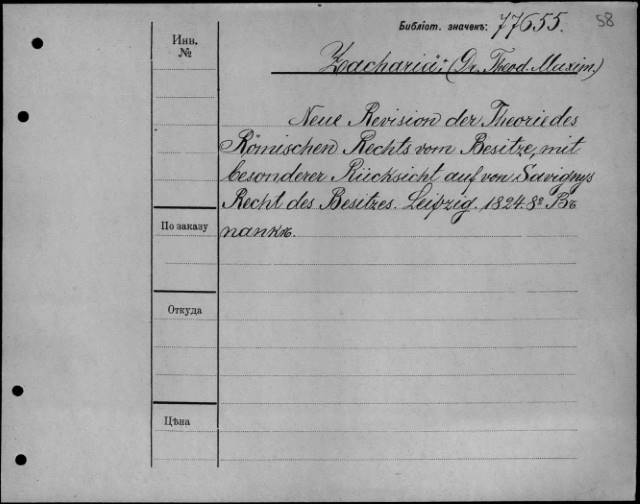 Библіот. значекъ: 77655.
58
Инв.
№
Zachariä: (Dr. Theod. Maxim.)
Neue Revision der Theorie des
Römischen Rechts vom Besitze, mit
besonderer Rücksicht auf von Savignys
Recht des Besitzes. Leipzig. 1824. 8º Въ
папкѣ.
По заказу
Откуда
Цѣна